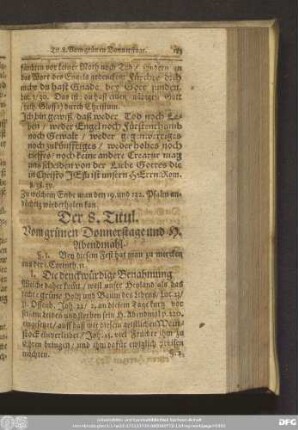 Tit. 8. Vom grünen Donnerstag.
fürchten vor keiner Noth noch Tod / sondern an
das Wort des Engels gedencken: Fürchte dich
nicht du hast Gnade bey Gott funden.
Luc. 1/30. Das ist: du hast einen
Ich bin gewiß daß weder Tod noch Le-
ben / weder Engel noch Fürstenthumb
noch Gewalt / weder gegenwertiges
noch zukünfftiges / weder hohes noch
tieffes / noch keine andere Creatur mag
uns scheiden von der Liebe Gottes die
in Christo JEsu ist unserm HErrn. Rom.
8/38. 39.
Zu welchem Ende man den 19. und 122. Psalm an-
dächtig wiederholen kan.
Der 8. Titul.
Vom grünen Donnerstage und H.
Abendmahl.
§. 1. Bey diesem Fest hat man zu mercken
aus der 1. Corinth. 11.
1. Die denckwürdige Benahmung
Welche daher kömt / weil unser Heyland als das
rechte grüne Holtz und Baum des Lebens Luc. 23/
31. Offenb. Joh. 22/2. an diesem Tage kurtz vor
seinem Leiden und sterben sein H. Abendmahl
eingesetzet / auff daß wir diesem geistlichen Wein-
stock einverleibet / Joh. 15. viel Früchte ihm zu
Ehren bringen / und ihn dafür ewiglich preisen
möchten.